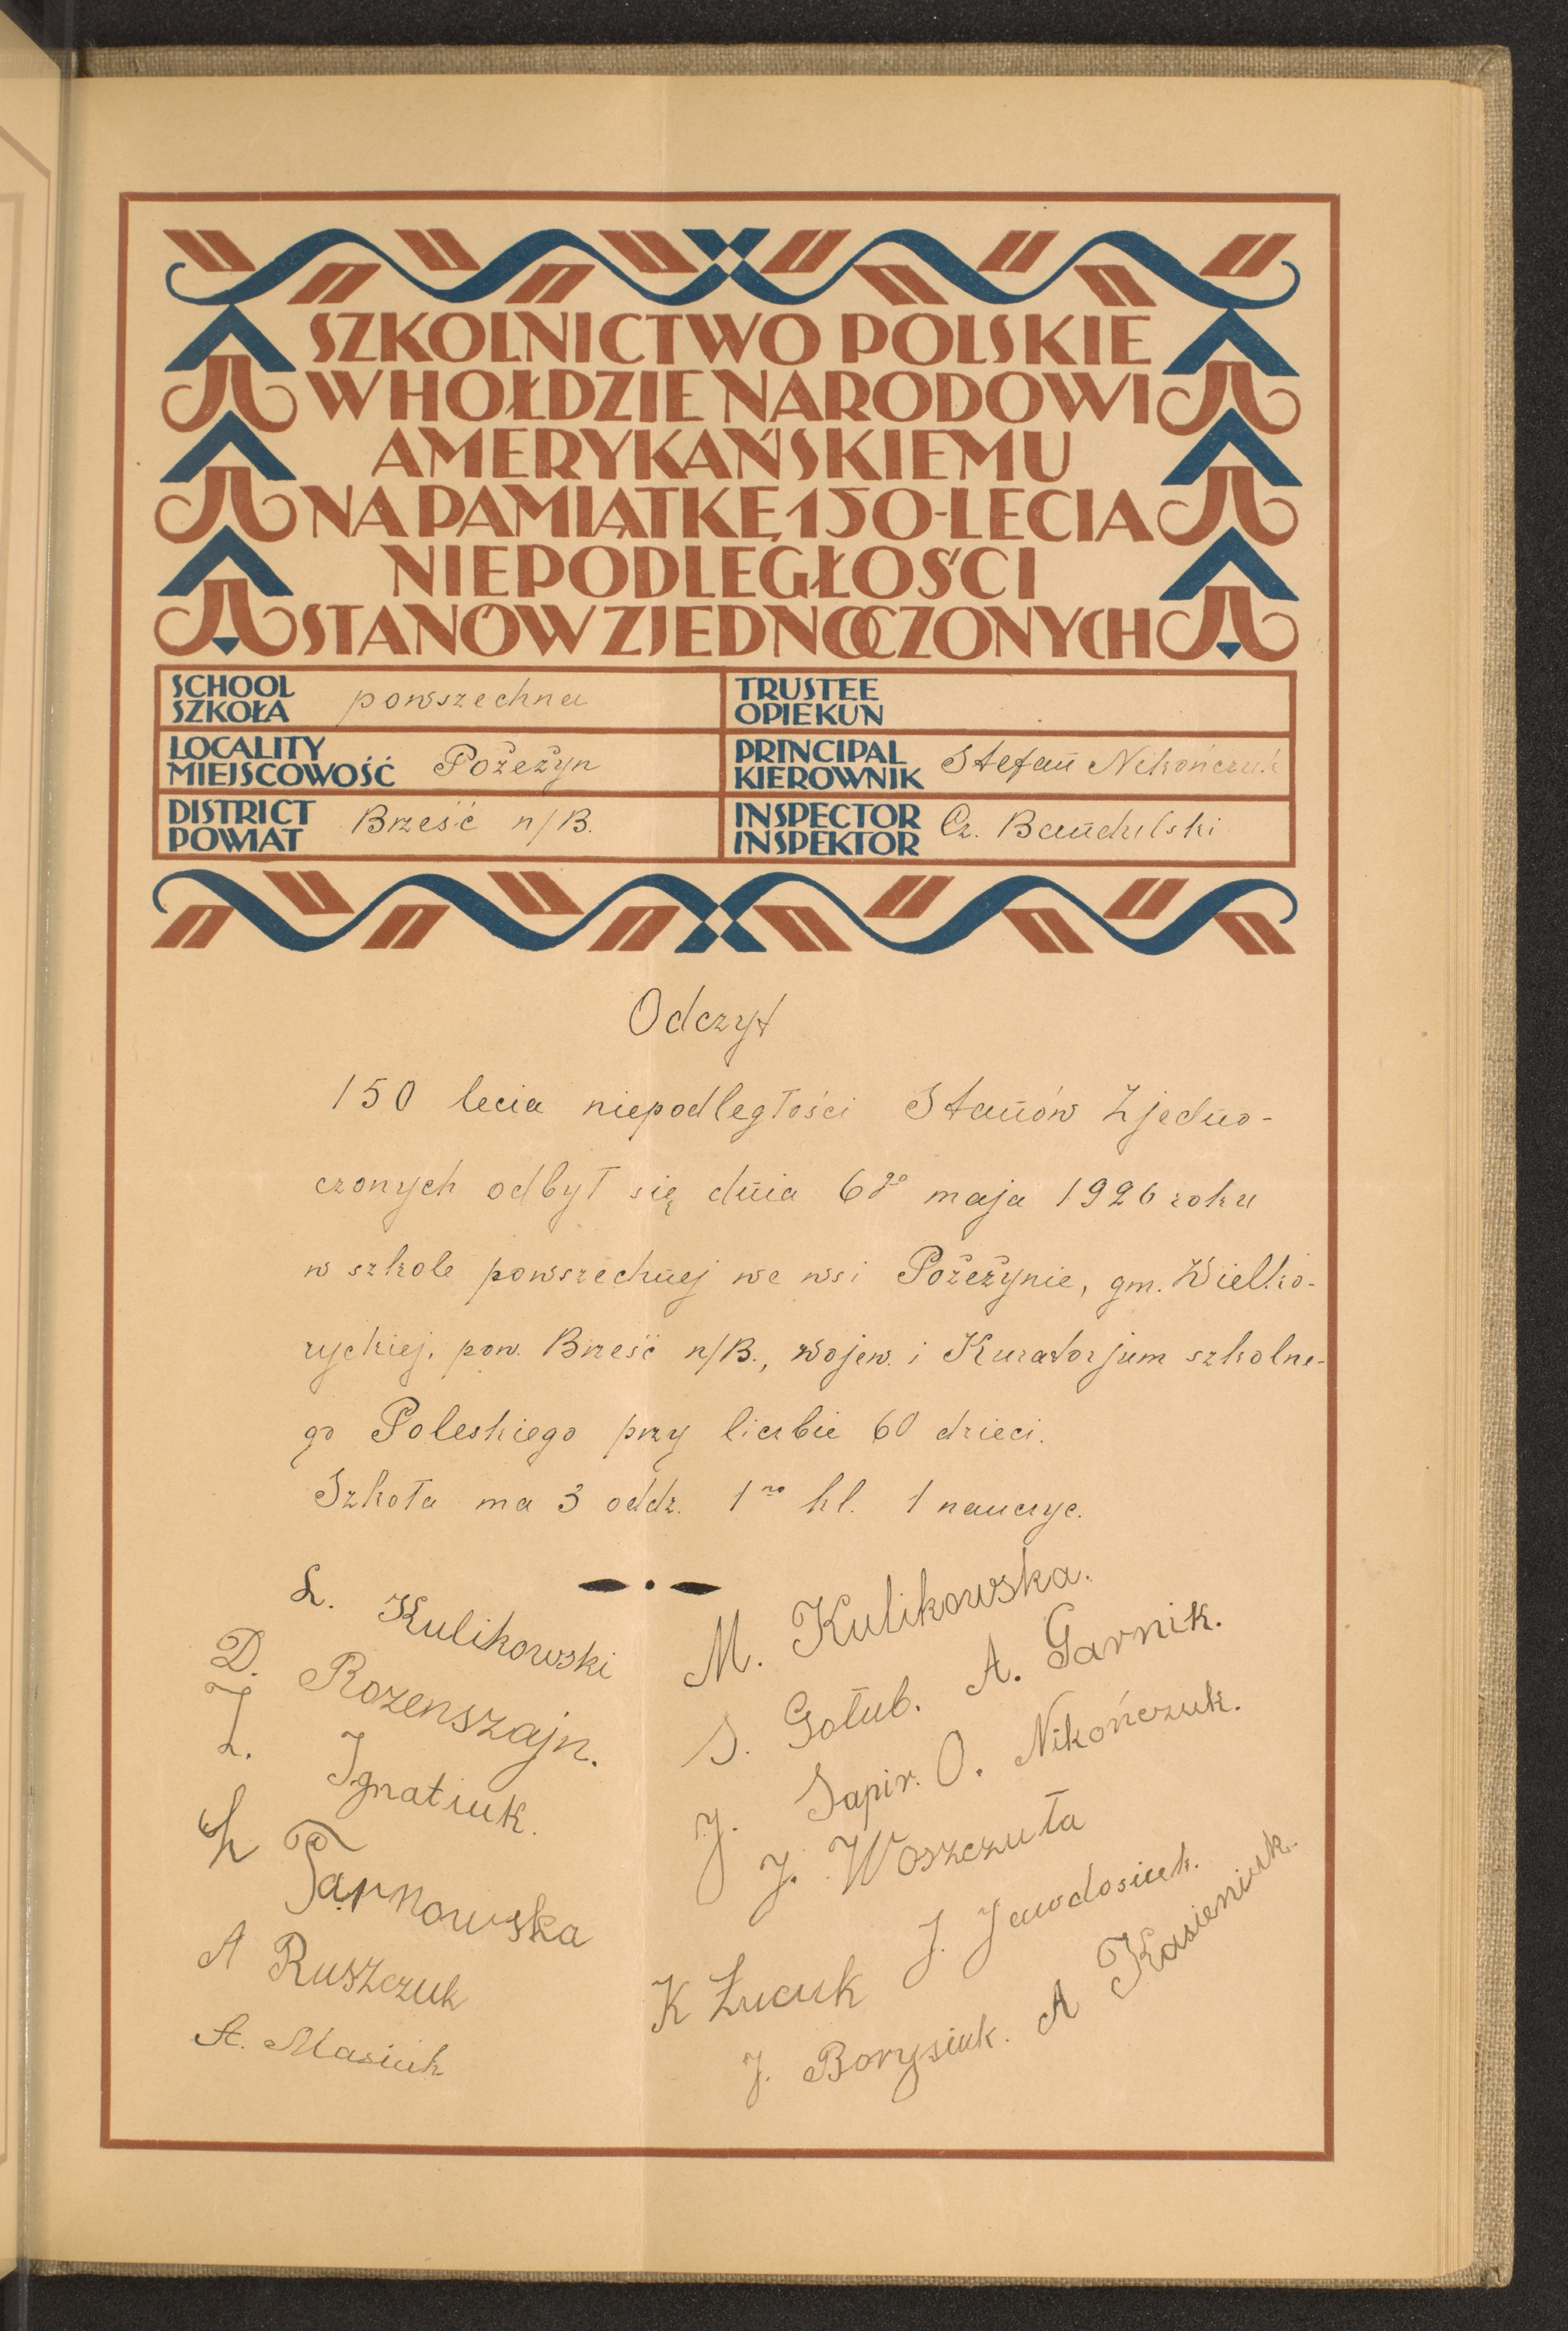 SZKOLNICTWO POLSKIE
W HOŁDZIE NARODOWI
AMERYKAŃSKIEMU
NA PAMIĄTKĘ 150-LECIA
NIEPODLEGŁOŚCI
STANÓW ZJEDNOCZONYCH
SCHOOL
SZKOŁA powszechna
TRUSTEE
OPIEKUN
LOCALITY
MIEJSCOWOŚĆ Pożeżyn
PRINCIPAL
KIEROWNIK Stefan Nikończuk
DISTRICT
POWIAT Brześć n/B.
INSPECTOR
INSPEKTOR Cz.
Odczyt
150 lecia niepodległości Stanów Zjedno-
czonych odbył się dnia 6go maja 1926 roku
w szkole powszechnej we wsi Pożeżynie, gm. Wielko-
ryckiej, pow. Brześć n/B., wojew. i Kuratorjum szkolne-
go Poleskiego przy liczbie 60 dzieci.
Szkoła ma 3 oddz. 1no kl. 1 nauczyc.
Kulikowski
D. Rozenszajn.
Ignatiuk.
Tarnowska
A Ruszczuk
A. Masiuk
M. Kulikowska.
S. Gołub. A. Garnik.
J. Sapir. O. Nikończuk.
J. Woszczuła
J. Jawdosiuk.
K Łucuk
J. Borysiuk. A Kasieniuk.